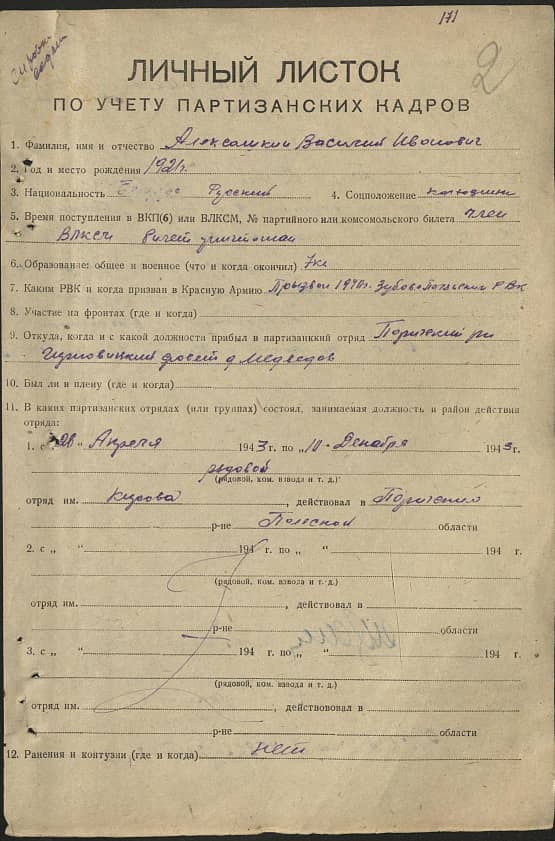 171
2
ЛИЧНЫЙ ЛИСТОК
ПО УЧЕТУ ПАРТИЗАНСКИХ КАДРОВ
1. Фамилия, имя и отчество Алексашкин Василий Иванович
2. Год и место рождения 1921г.
3. Национальность Русский 4. Соцположение
5. Время поступления в ВКП(б) или ВЛКСМ, № партийного или комсомольского билета член
ВЛКСМ билет
6. Образование: общее и военное (что и когда окончил) 7кл
7. Каким РВК и когда призван в Красную Армию 1940г. Зубово Полянским РВК
8. Участие на фронтах (где и когда)
9. Откуда, когда и с какой должности прибыл в партизанкий отряд Паричский
д Медведов
10. Был ли в плену (где и когда)
11. В каких партизанских отрядах (или группах) состоял, занимаемая должность и район действия
отряда:
1. с „28 “ Апреля 1943г. по „10 “ Декабря 1943г.
рядовой
(рядовой, ком. взвода и т. д.)
отряд им. Кирова, действовал в Паричский
р-не Полесской области
2. с „ “ 194 г. по „ “ 194 г.
(рядовой, ком. взвода и т. д.)
отряд им. , действовал в
р-не области
3. с „ “ 194 г. по „ “ 194 г.
(рядовой, ком. взвода и т. д.)
отряд им. , действововал в
р-не области
12. Ранения и контузии (где и когда) нет